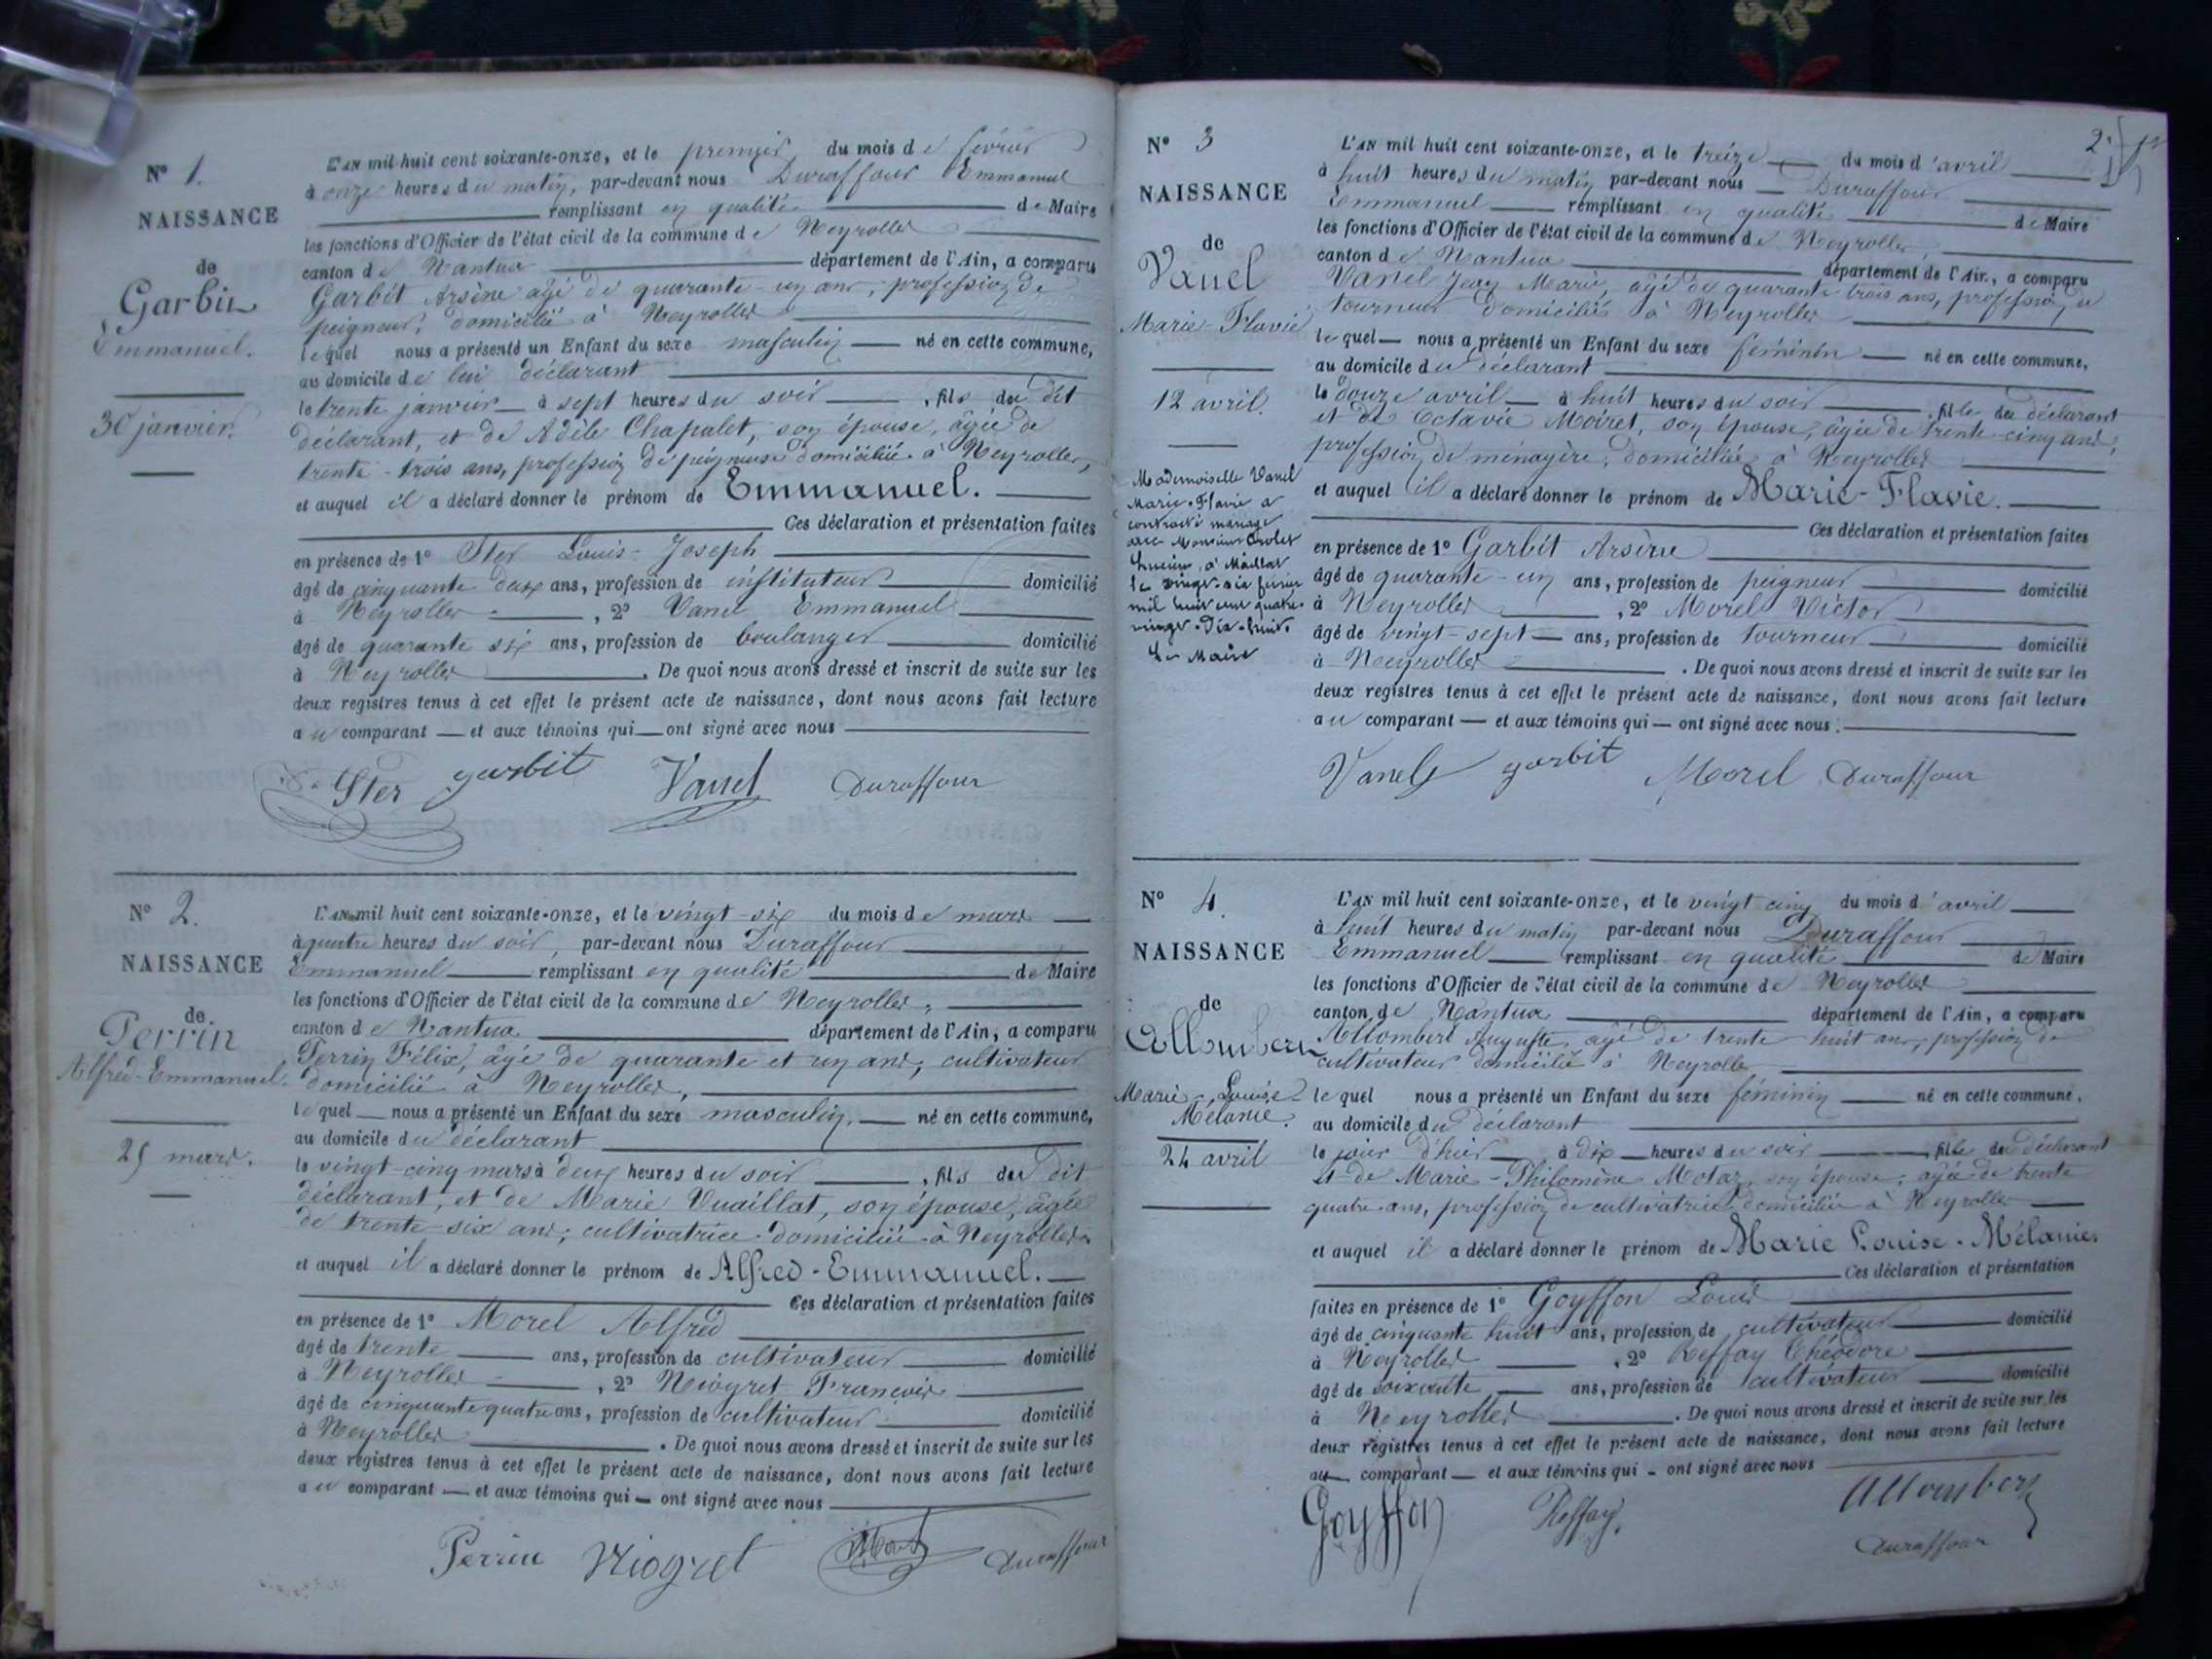 N° 1.
NAISSANCE
de
Garbit
Emmanuel.
30 janvier.
L'AN mil huit cent soixante-onze, et le premier du mois de février
à onze heures du matin, par-devant nous Duraffour Emmanuel
remplissant en qualité de Maire
les fonctions d'Officier de l'état civil de la commune de Neyrolles
canton de Nantua département de l'Ain, a comparu
Garbit Arsène âgé de quarante-un ans, profession de
peigneur, domicilié à Neyrolles
lequel nous a présenté un Enfant du sexe masculin né en cette commune,
au domicile de lui déclarant
le trente janvier à sept heures du soir, fils du dit
déclarant, et de Adèle Chapalet, son épouse, âgée de
trente-trois ans, profession de peigneuse domiciliée à Neyrolles,
et auquel il a déclaré donner le prénom de Emmanuel.
Ces déclaration et présentation faites
en présence de 1° Ster Louis-Joseph
âgé de cinquante deux ans, profession de instituteur domicilié
à Neyrolles, 2° Vanel Emmanuel
âgé de quarante six ans, profession de boulanger domicilié
à Neyrolles. De quoi nous avons dressé et inscrit de suite sur les
deux registres tenus à cet effet le présent acte de naissance, dont nous avons fait lecture
au comparant et aux témoins qui ont signé avec nous
Ster garbit Vanel Duraffour
N° 2.
NAISSANCE
de
Perrin
Alfred-Emmanuel.
25 mars.
L'AN mil huit cent soixante-onze, et le vingt-six du mois de mars
à quatre heures du soir, par-devant nous Duraffour
Emmanuel remplissant en qualité de Maire
les fonctions d'Officier de l'état civil de la commune de Neyrolles,
canton de Nantua département de l'Ain, a comparu
Perrin Félix, âgé de quarante et un ans, cultivateur
domicilié à Neyrolles,
lequel nous a présenté un Enfant du sexe masculin, né en cette commune,
au domicile du déclarant
le vingt-cinq mars à deux heures du soir, fils du dit
déclarant, et de Marie Vuaillat, son épouse, âgée
de trente-six ans; cultivatrice domiciliée à Neyrolles
et auquel il a déclaré donner le prénom de Alfred-Emmanuel.
Ces déclaration et présentation faites
en présence de 1° Morel Alfred
âgé de trente ans, profession de cultivateur domicilié
à Neyrolles, 2° Niogret François
âgé de cinquante quatre ans, profession de cultivateur domicilié
à Neyrolles. De quoi nous avons dressé et inscrit de suite sur les
deux registres tenus à cet effet le présent acte de naissance, dont nous avons fait lecture
au comparant et aux témoins qui ont signé avec nous
Perrin Niogret Morel Duraffour
2
N° 3
NAISSANCE
de
Vanel
Marie-Flavie
12 avril.
Mademoiselle Vanel
Marie-Flavie a
contracté mariage
avec Monsieur
Lucien, à Maillat
le vingt-six février
mil huit cent quatre-
vingt-dix-huit.
Le Maire
L'AN mil huit cent soixante-onze, et le treize du mois d'avril
à huit heures du matin par-devant nous Duraffour
Emmanuel remplissant en qualité de Maire
les fonctions d'Officier de l'état civil de la commune de Neyrolles,
canton de Nantua département de l'Ain, a comparu
Vanel Jean Marie, âgé de quarante trois ans, profession de
tourneur domicilié à Neyrolles
lequel nous a présenté un Enfant du sexe féminin né en cette commune,
au domicile du déclarant
le douze avril à huit heures du soir, fille du déclarant
et de Octavie Moiret, son épouse, âgée de trente-cinq ans,
profession de ménagère, domiciliée à Neyrolles
et auquel il a déclaré donner le prénom de Marie-Flavie.
Ces déclaration et présentation faites
en présence de 1° Garbit Arsène
âgé de quarante-un ans, profession de peigneur domicilié
à Neyrolles, 2° Morel Victor
âgé de vingt-sept ans, profession de tourneur domicilié
à Neyrolles. De quoi nous avons dressé et inscrit de suite sur les
deux registres tenus à cet effet le présent acte de naissance, dont nous avons fait lecture
au comparant et aux témoins qui ont signé avec nous:
Vanel garbit Morel Duraffour
N° 4.
NAISSANCE
de
Allombert
Marie-Louise
Mélanie.
24 avril
L'AN mil huit cent soixante-onze, et le vingt cinq du mois d'avril
à huit heures du matin par-devant nous Duraffour
Emmanuel remplissant en qualité de Maire
les fonctions d'Officier de l'état civil de la commune de Neyrolles
canton de Nantua département de l'Ain, a comparu
Allombert Auguste, âgé de trente huit ans, profession de
cultivateur domicilié à Neyrolles
lequel nous a présenté un Enfant du sexe féminin né en cette commune,
au domicile du déclarant
le jour d'hier à dix heures du soir, fille du déclarant
et de Marie-Philomène son épouse, âgée de trente
quatre ans, profession de cultivatrice domiciliée à Neyrolles
et auquel il a déclaré donner le prénom de Marie Louise-Mélanie.
Ces déclaration et présentation
faites en présence de 1° Goyffon Louis
âgé de cinquante huit ans, profession de cultivateur domicilié
à Neyrolles, 2° Reffay Théodore
âgé de soixante ans, profession de cultivateur domicilié
à Neyrolles. De quoi nous avons dressé et inscrit de suite sur les
deux registres tenus à cet effet le présent acte de naissance, dont nous avons fait lecture
au comparant et aux témoins qui ont signé avec nous
Goyffon Reffay Allombert
Duraffour